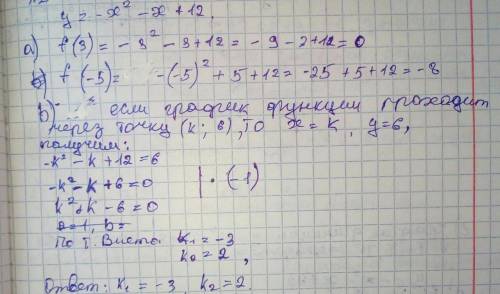 y = -x² - x + 12.
а) f(3) = -3² - 3 + 12 = -9 - 3 + 12 = 0
б) f(-5) = -(-5)² + 5 + 12 = -25 + 5 + 12 = -8
в) если график функции проходит
через точку (k; 6), то x = k, y = 6,
получим:
-k² - k + 12 = 6
-k² - k + 6 = 0 | · (-1)
k² + k - 6 = 0
a = 1, b =
По т. Виета k₁ = -3
k₂ = 2,
Ответ: k₁ = -3, k₂ = 2.